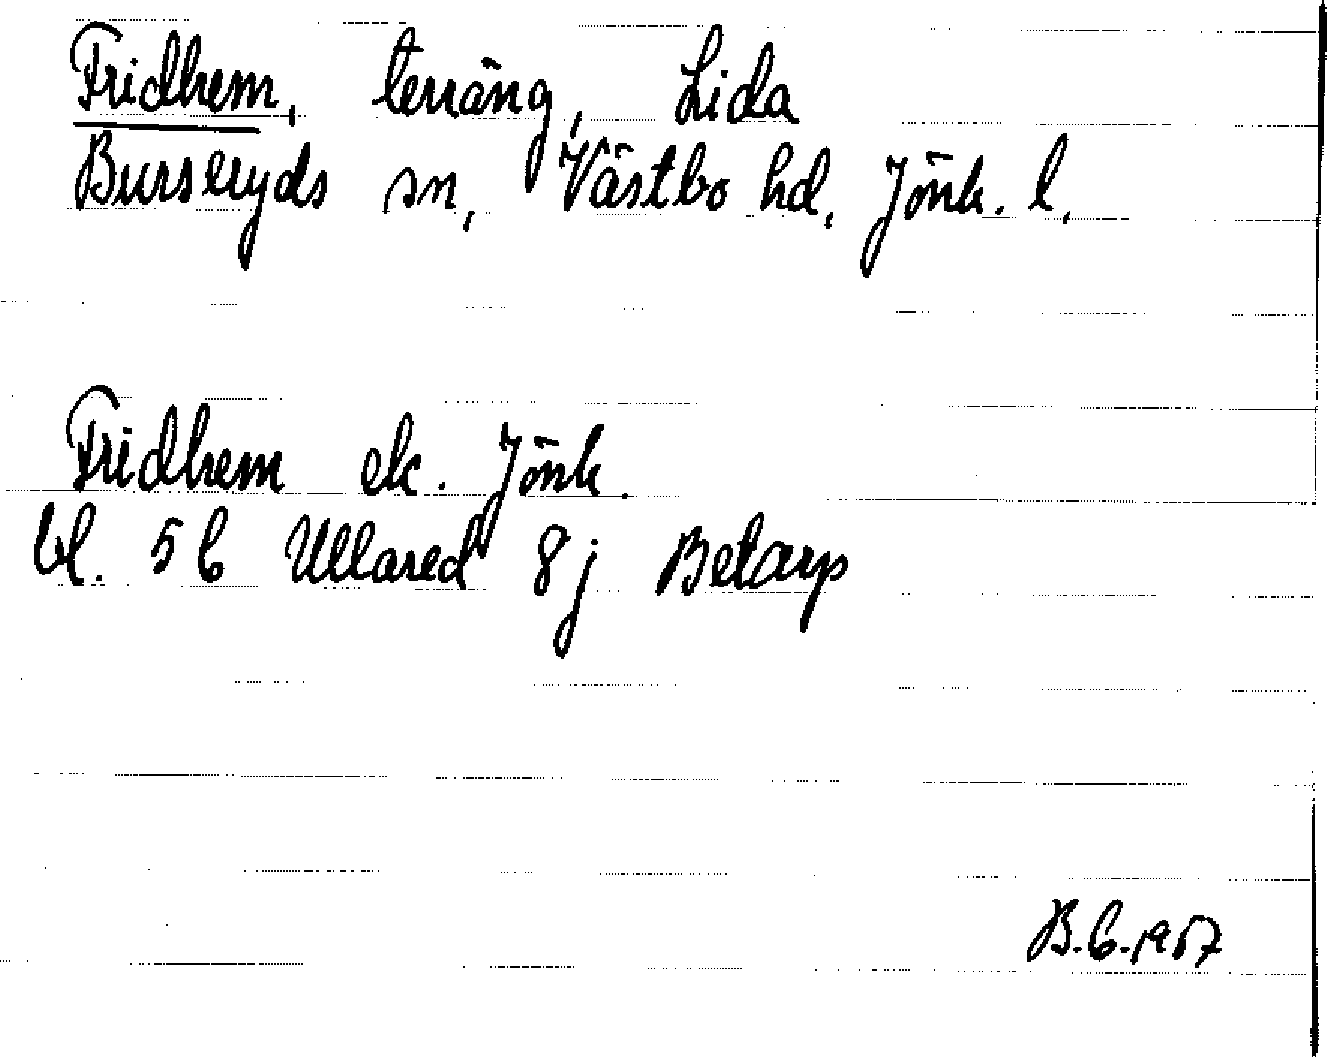 Fridhem, terräng, Lida
Burseryds sn, Västbo hd, Jönk. l.
Fridhem ek. Jönk.
bl. 5 6 Ullared 8 j Betarp
B.G. 1967